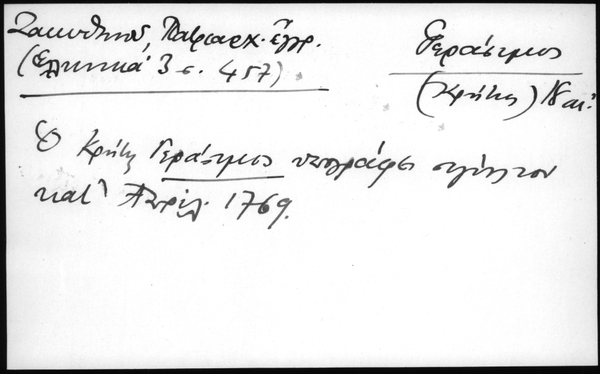 Ζακυθηνοῦ, Πατριαρχ. ἔγγρ.
(Ἑλληνικά 3 σ. 457)
Γεράσιμος
(Κρήτης) 18 αι.
Ὁ Κρήτης Γεράσιμος υπογράφει σιγίλλιον
κατ' Ἀπρίλ. 1769.